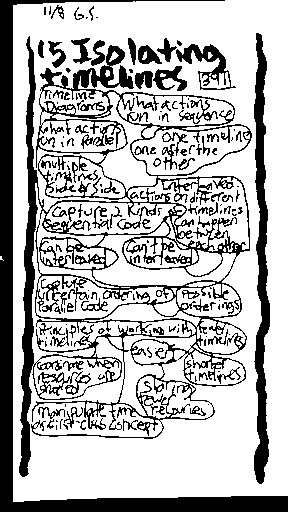 11/8 G.S.
15 Isolating
timelines 391
Timeline
Diagrams
What actions
run in sequence
what actions
run in parallel
one timeline
one after the
other
multiple
timelines
side by side
Interleaved
actions on different
timelines
can happen
between
each other
Capture 2 kinds of
Sequential Code
can be
interleaved
Can't be
interleaved
Capture
uncertain ordering of
Parallel Code
Possible
orderings
Principles of working with
timelines
fewer
timelines
easier
shorter
timelines
coordinate when
resources are
shared
Sharing
fewer
resources
manipulate time
as first-class concept